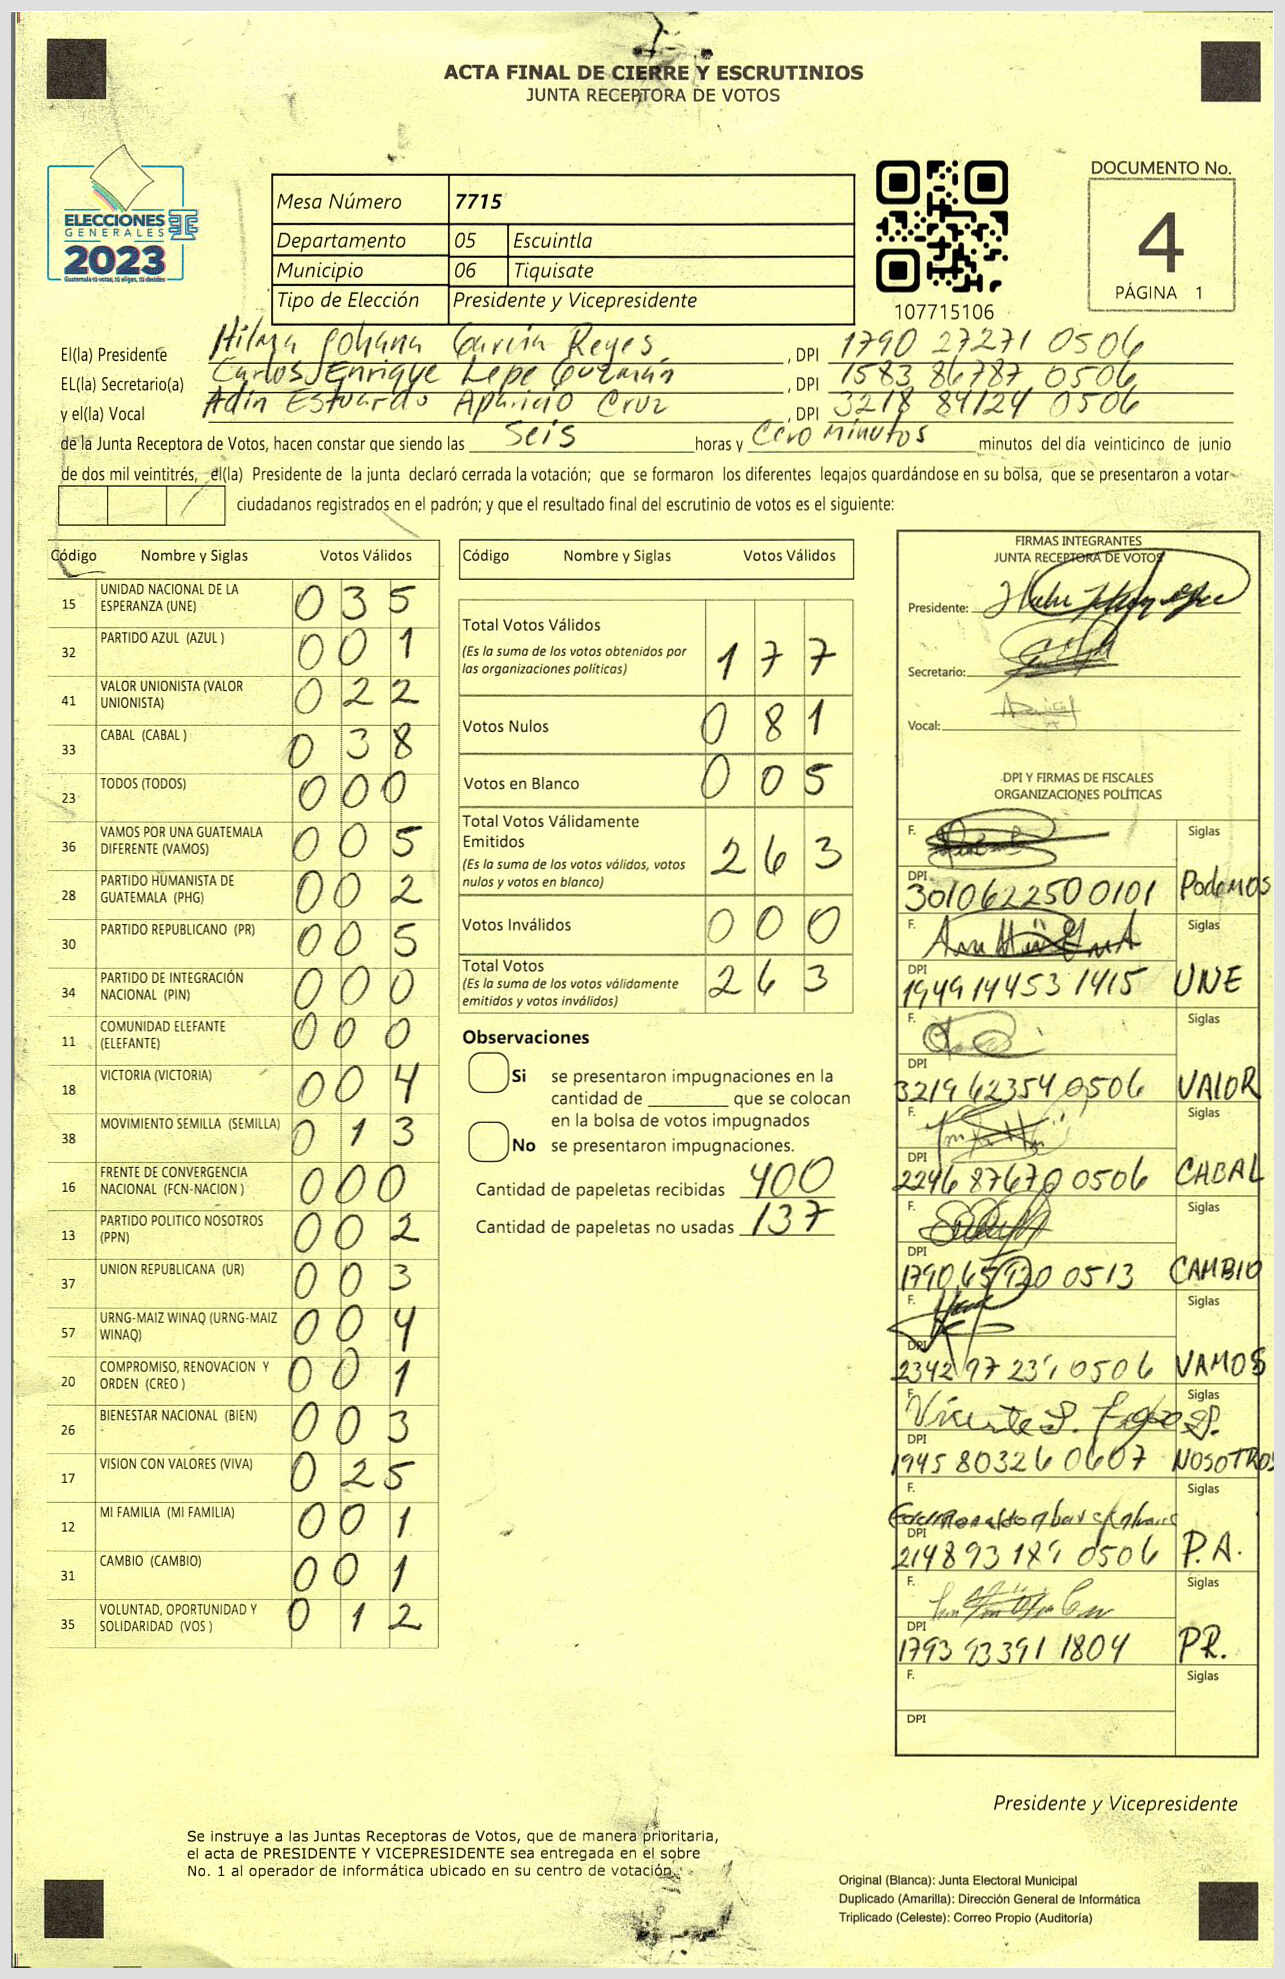 ACTA FINAL DE CIERRE Y ESCRUTINIOS
JUNTA RECEPTORA DE VOTOS
ELECCIONES
GENERALES
2023
Guatemala tú votas, tú eliges, tú decides
Mesa Número 7715
Departamento 05 Escuintla
Municipio 06 Tiquisate
Tipo de Elección Presidente y Vicepresidente
107715106
DOCUMENTO No.
4
PÁGINA 1
El(la) Presidente Hilma Johana García Reyes, DPI 1790 27271 0506
EL(la) Secretario(a) Carlos Enrique Lepe Guzmán, DPI 1583 86787 0506
y el(la) Vocal Adin Estuardo Aparicio Cruz, DPI 3218 84124 0506
de la Junta Receptora de Votos, hacen constar que siendo las Seis horas y Cero minutos minutos del día veinticinco de junio
de dos mil veintitrés, el(la) Presidente de la junta declaró cerrada la votación; que se formaron los diferentes legajos guardándose en su bolsa, que se presentaron a votar
ciudadanos registrados en el padrón; y que el resultado final del escrutinio de votos es el siguiente:
Código Nombre y Siglas Votos Válidos
15 UNIDAD NACIONAL DE LA ESPERANZA (UNE) 035
32 PARTIDO AZUL (AZUL ) 001
41 VALOR UNIONISTA (VALOR UNIONISTA) 022
33 CABAL (CABAL ) 038
23 TODOS (TODOS) 000
36 VAMOS POR UNA GUATEMALA DIFERENTE (VAMOS) 005
28 PARTIDO HUMANISTA DE GUATEMALA (PHG) 002
30 PARTIDO REPUBLICANO (PR) 005
34 PARTIDO DE INTEGRACIÓN NACIONAL (PIN) 000
11 COMUNIDAD ELEFANTE (ELEFANTE) 000
18 VICTORIA (VICTORIA) 004
38 MOVIMIENTO SEMILLA (SEMILLA) 013
16 FRENTE DE CONVERGENCIA NACIONAL (FCN-NACION ) 000
13 PARTIDO POLITICO NOSOTROS (PPN) 002
37 UNION REPUBLICANA (UR) 003
57 URNG-MAIZ WINAQ (URNG-MAIZ WINAQ) 004
20 COMPROMISO, RENOVACION Y ORDEN (CREO ) 001
26 BIENESTAR NACIONAL (BIEN) 003
17 VISION CON VALORES (VIVA) 025
12 MI FAMILIA (MI FAMILIA) 001
31 CAMBIO (CAMBIO) 001
35 VOLUNTAD, OPORTUNIDAD Y SOLIDARIDAD (VOS ) 012
Código Nombre y Siglas Votos Válidos
Total Votos Válidos 177
(Es la suma de los votos obtenidos por
las organizaciones políticas)
Votos Nulos 081
Votos en Blanco 005
Total Votos Válidamente
Emitidos 263
(Es la suma de los votos válidos, votos
nulos y votos en blanco)
Votos Inválidos 000
Total Votos 263
(Es la suma de los votos válidamente
emitidos y votos inválidos)
Observaciones
Si se presentaron impugnaciones en la
cantidad de ________ que se colocan
en la bolsa de votos impugnados
No se presentaron impugnaciones.
Cantidad de papeletas recibidas 400
Cantidad de papeletas no usadas 137
FIRMAS INTEGRANTES
JUNTA RECEPTORA DE VOTOS
Presidente:
Secretario:
Vocal:
DPI Y FIRMAS DE FISCALES
ORGANIZACIONES POLÍTICAS
F. Siglas
DPI 3010622500101 Podemos
F. Siglas
DPI 1949 14453 1415 UNE
F. Siglas
DPI 3219 62354 0506 VALOR
F. Siglas
DPI 2246 87670 0506 CABAL
F. Siglas
DPI 0513 CAMBIO
F. Siglas
DPI 0506 VAMOS
F. Siglas
DPI 1945 80326 0607 NOSOTROS
F. Siglas
DPI 0506 P.A.
F. Siglas
DPI 1793 93391 1804 PR.
F. Siglas
DPI
Presidente y Vicepresidente
Se instruye a las Juntas Receptoras de Votos, que de manera prioritaria,
el acta de PRESIDENTE Y VICEPRESIDENTE sea entregada en el sobre
No. 1 al operador de informática ubicado en su centro de votación.
Original (Blanca): Junta Electoral Municipal
Duplicado (Amarilla): Dirección General de Informática
Triplicado (Celeste): Correo Propio (Auditoría)